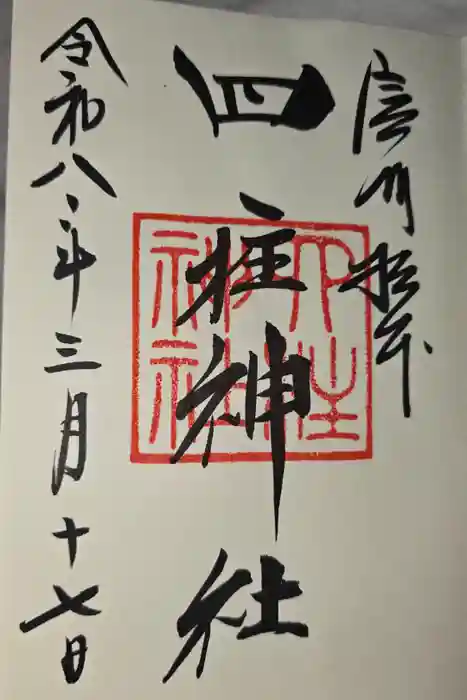 信州松本
四柱神社
四柱
神社
令和八年三月十七日